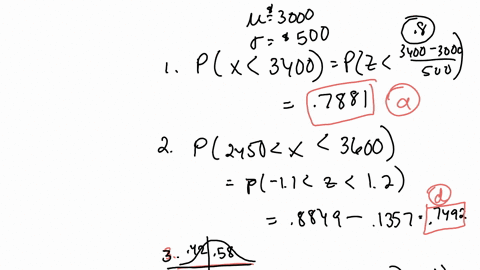 μ = $3000
σ = $500
.8
1. P(x < 3400) = P(z < (3400-3000)/500)
= .7881 a
2. P(2450 < x < 3600)
= P(-1.1 < z < 1.2)
d
= .8849 - .1357 = .7492
3. .42 .58